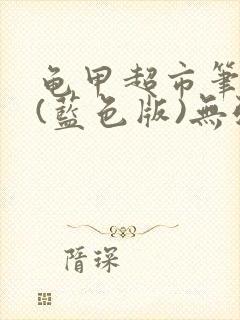 龟甲超市筆
(藍色版)無
隋琛